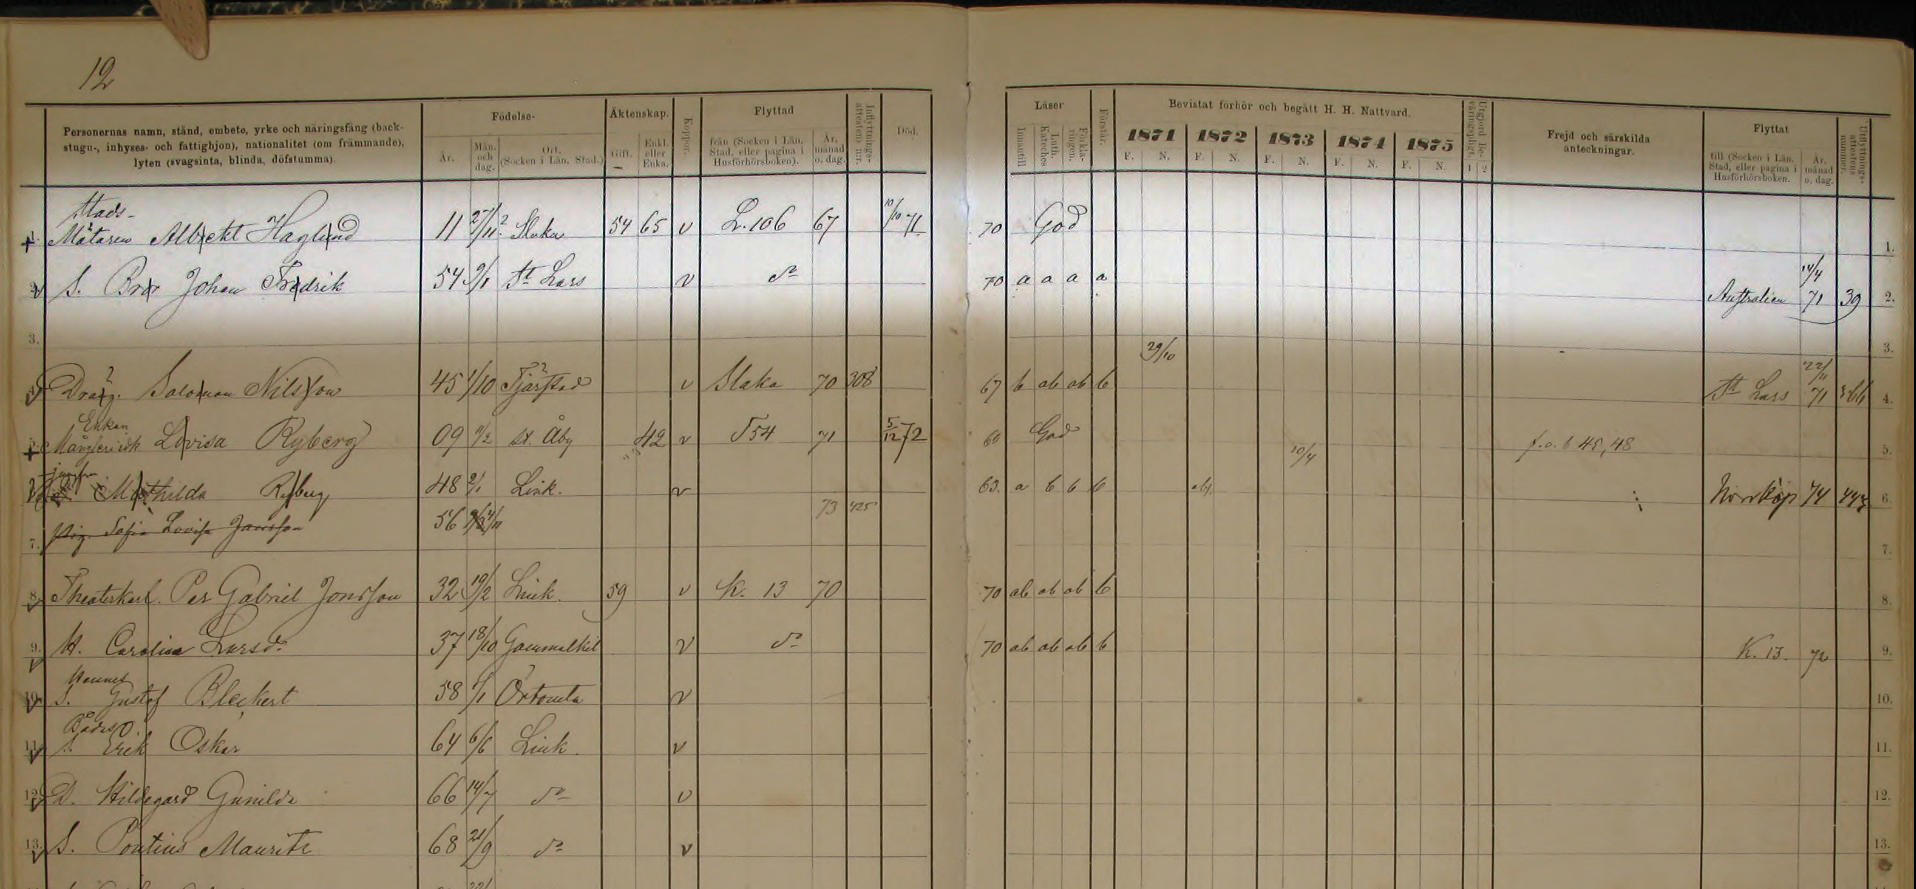 12
Personernas namn, stånd, embete, yrke och näringsfång (back-
stugu-, inhyses- och fattighjon), nationalitet (om främmande),
lyten (svagsinta, blinda, döfstumma).
Födelse-
År.
Mån. och dag.
Ort. (Socken i Län, Stad.)
Äktenskap.
Gift.
Enkl. eller Enka.
Koppor.
Flyttad
från (Socken i Län, Stad, eller pagina i Husförhörsboken).
År, månad o. dag.
Inflyttnings-attestens nr.
Död.
Läser
Innantill.
Luth. Kateches
Förklaringen.
Förstår.
Bevistat förhör och begått H. H. Nattvard.
1871 1872 1873 1874 1875
F. N. F. N. F. N. F. N. F. N.
1 2
Frejd och särskilda
anteckningar.
Flyttat
till (Socken i Län, Stad, eller pagina i Husförhörsboken.
År, månad o. dag.
Utflyttnings-attestens nummer.
Stads-
1. Mätaren Albrekt Haglund 11 27/11 Slaka 54 65 v L. 106 67 10/10 71 70 God 1.
2. S. Johan Fredrik 54 9/1 St Lars v do 70 a a a a Australien 14/4 71 39 2.
3. 3.
29/10
4. Salomon Nilsson 45 1/10 Tjärstad v Slaka 70 308 67 b ab ab b St Lars 22/11 71 4.
Enkan
5. Lovisa Ryberg 09 Åby 42 v 54 71 5/12 72 God 10/4 45, 48 5.
6. Mathilda Ryberg 48 2/1 Link. v 63. a b b b Norrköp 74 6.
7. Pig. Sofia Lovisa Jansson 56 73 425 7.
8. Theaterkarl. Per Gabriel Jonsson 32 19/2 Link. 59 v K. 13 70 70 ab ab ab b 8.
9. H. Carolina Larsdr 37 18/10 Gammalkil v do 70 ab ab ab b K. 13. 72 9.
Hennes
10. S. Gustaf Bleckert 58 Örtomta v 10.
Bådas
11. S. Erik Oskar 64 6/6 Link. v 11.
12. D. Hildegard Gunilda 66 14/7 do v 12.
13. S. Pontius Mauritz 68 21/9 do v 13.